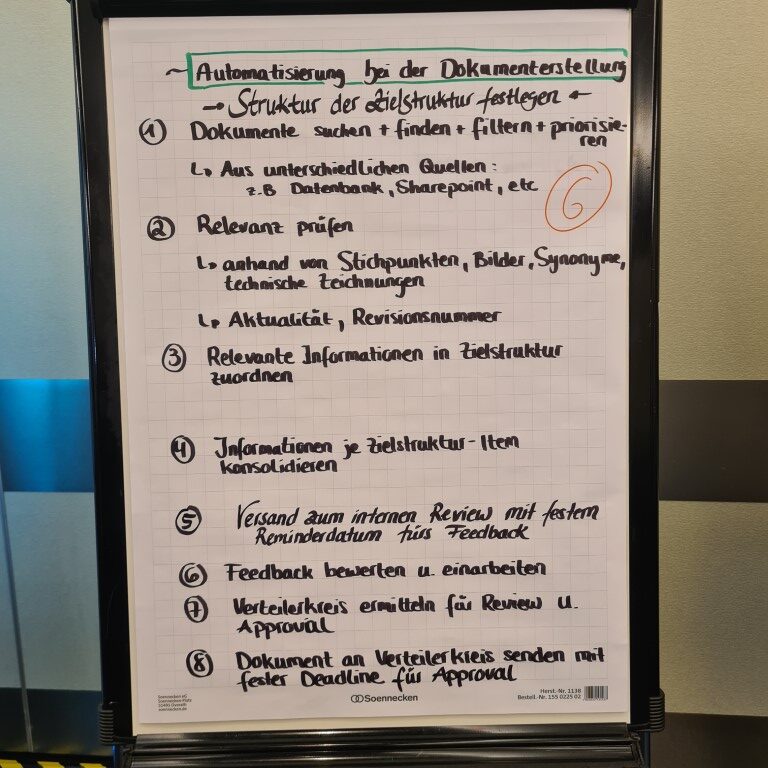 ~ Automatisierung bei der Dokumenterstellung
→ Struktur der Zielstruktur festlegen ←
① Dokumente suchen + finden + filtern + priorisie-
ren
↳ Aus unterschiedlichen Quellen:
z.B Datenbank, Sharepoint, etc
6
② Relevanz prüfen
↳ anhand von Stichpunkten, Bilder, Synonyme,
technische Zeichnungen
↳ Aktualität, Revisionsnummer
③ Relevante Informationen in Zielstruktur
zuordnen
④ Informationen je Zielstruktur-Item
konsolidieren
⑤ Versand zum internen Review mit festem
Reminderdatum fürs Feedback
⑥ Feedback bewerten u. einarbeiten
⑦ Verteilerkreis ermitteln für Review u.
Approval
⑧ Dokument an Verteilerkreis senden mit
fester Deadline für Approval
Soennecken eG
Soennecken-Platz
51491 Overath
soennecken.de
Soennecken
Herst.-Nr. 1138
Bestell.-Nr. 155 0225 02